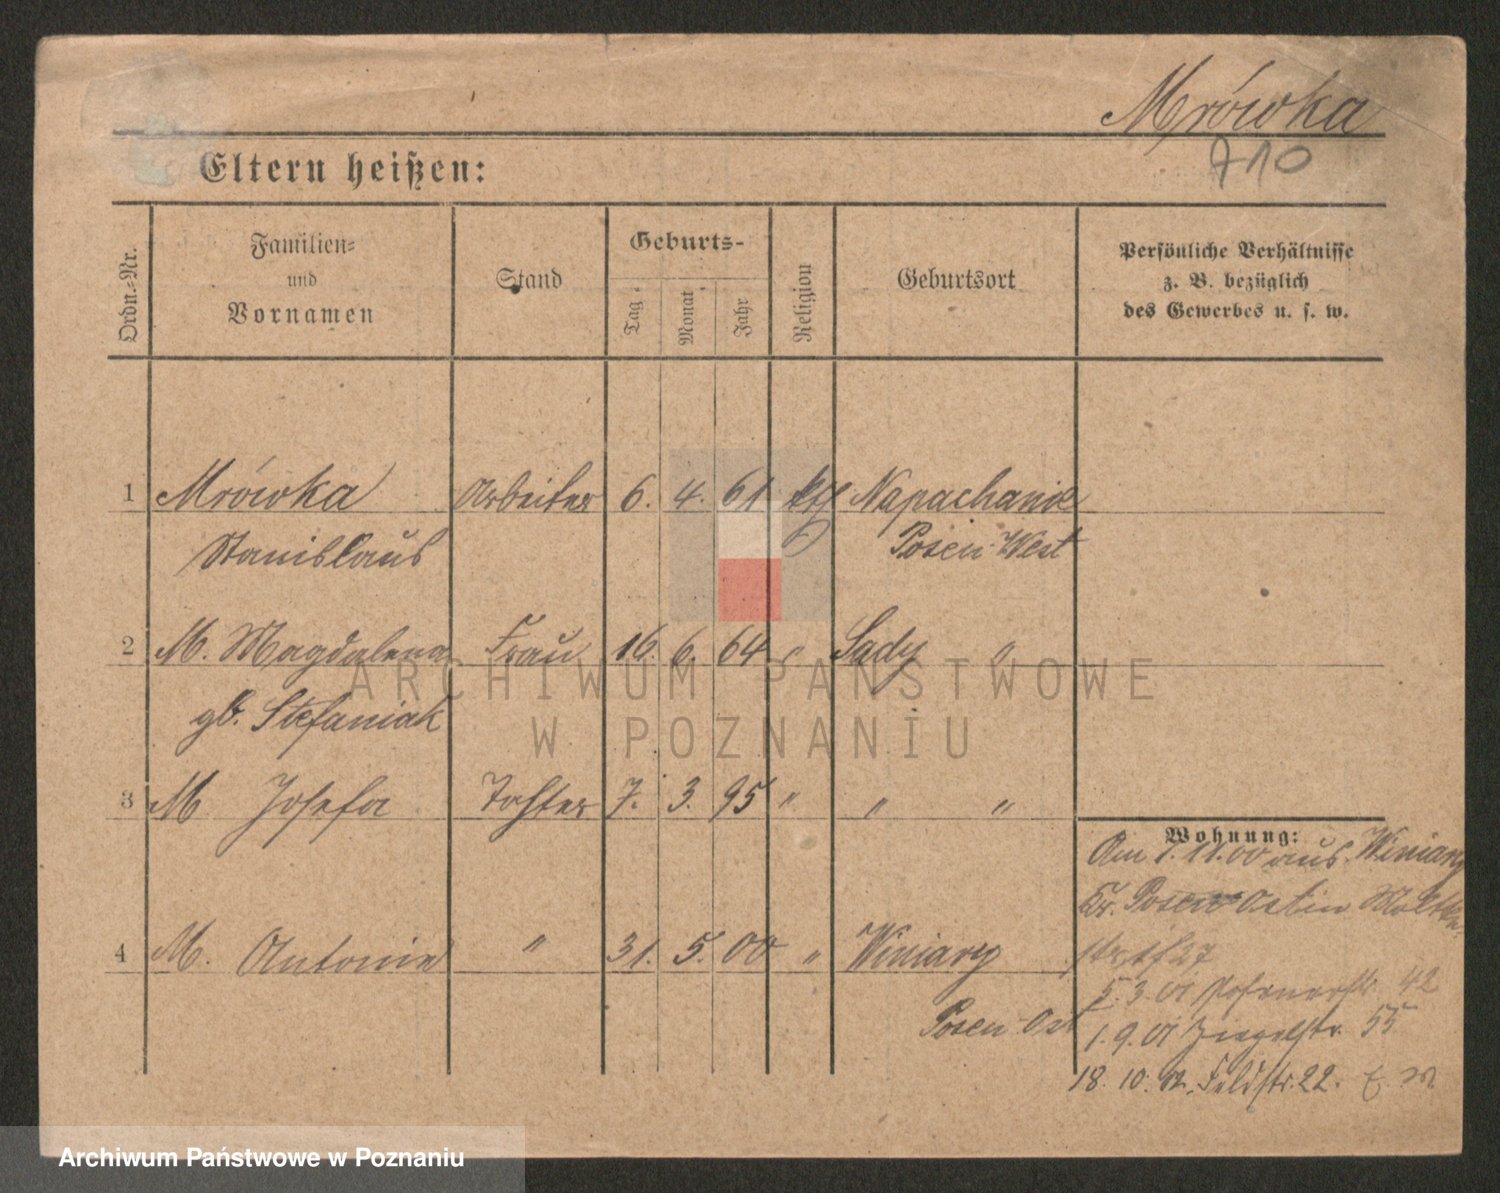 Mrówka
710
Eltern heißen:
Ordn.-Nr.
Familien-
und
Vornamen
Stand
Geburts-
Tag
Monat
Jahr
Religion
Geburtsort
Persönliche Verhältnisse
z. B. bezüglich
des Gewerbes u. s. w.
1 Mrówka Arbeiter 6. 4. 61 kth Napachanie
Stanislaus Posen West
2 M. Magdalena Frau 16 6. 64 " Sady "
gb. Stefaniak
3 M Josefa Tochter 7. 3. 95 " " "
4 M. Antonie " 31. 5. 00 " Winiary
Posen Ost
Wohnung:
Am 1.11.00 aus Winiary
Kr. Posen Ost in Moltke
str 27
5. 3. 01 Posenerstr. 42
1. 9. 01 Ziegelstr. 55
18. 10. 02. Feldstr. 22.
ARCHIWUM PAŃSTWOWE
W POZNANIU
Archiwum Państwowe w Poznaniu